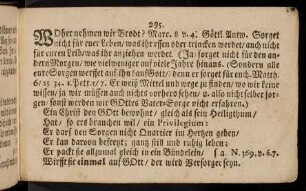 295.
Woher nehmen wir Brodt? Marc. 8 v. 4. Göttl. Antw. Sorget
nicht für euer Leben, was ihr essen oder trincken werdet, auch nicht
für euren Leib, was ihr anziehen werdet. (Ja sorget nicht für den an-
dern Morgen, wie vielweniger auf viele Jahre hinaus. (Sondern alle
eure Sorgen werffet auf ihn (auf Gott) denn er sorget für euch. Matth.
6/25 34. 1. Petr. 5/7. Er weiß Mittel und Wege zu finden, wo wir nichts
sehen; drum müssen wir auf ihn alleine sehen/ u. also nicht selber sor-
gen/ sonst werden wir GOttes Vater-Sorge nicht erfahren.)
Ein Christ den GOtt bewohnt/ gleich als sein Heiligthum/
Hat/ so ers brauchen will/ ein kräfftiges Privilegium:
Er darf den Sorgen nicht Quartier im Hertzen geben/
Er kan davon befreyt; gantz still und ruhig leben:
Er packt sie allzumal gleich in ein Bündgelein/ N. 369. v. 6. 7.
Wirfft sie einmal auf GOtt/ der wird Versorger seyn.